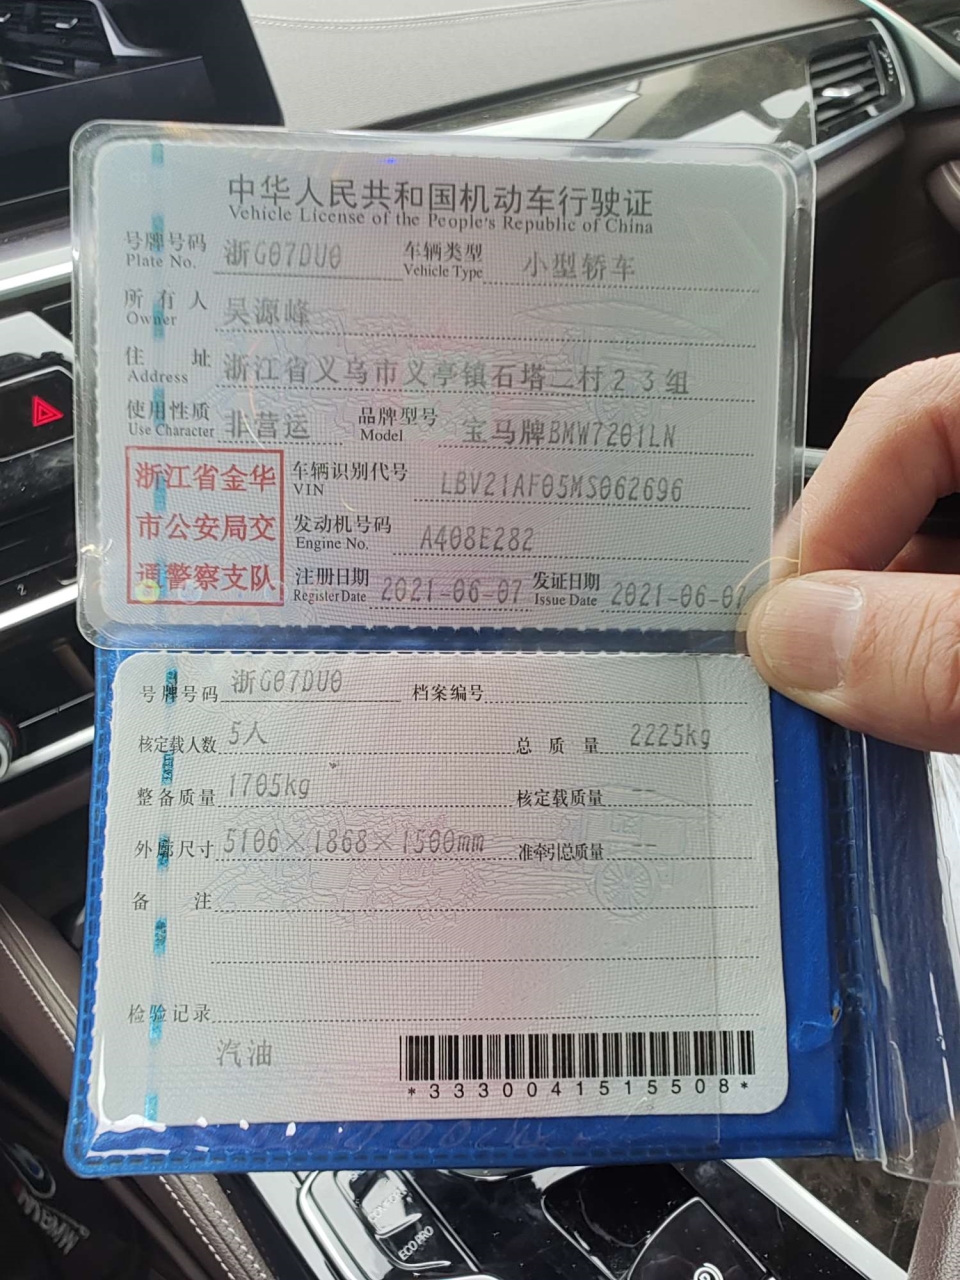 中华人民共和国机动车行驶证
Vehicle License of the People's Republic of China
号牌号码 浙G07DU0 车辆类型 小型轿车
Plate No. Vehicle Type
所有人 吴源峰
Owner
住址 浙江省义乌市义亭镇石塔二村23组
Address
使用性质 非营运 品牌型号 宝马牌BMW7201LN
Use Character Model
浙江省金华
市公安局交
通警察支队
车辆识别代号 LBV21AF05MS062696
VIN
发动机号码 A408E282
Engine No.
注册日期 2021-06-07 发证日期 2021-06-07
Register Date Issue Date
号牌号码 浙G07DU0 档案编号
核定载人数 5人 总质量 2225kg
整备质量 1705kg 核定载质量 --
外廓尺寸 5106×1868×1500mm 准牵引总质量 --
备注
检验记录
汽油
*3330041515508*
ECO PRO
BMW
2